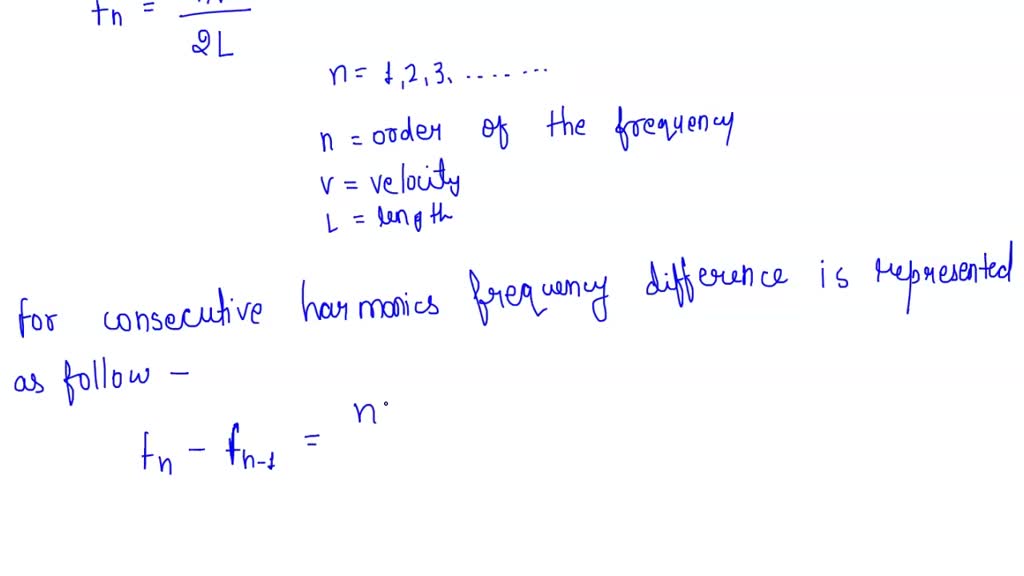 fn =
2L
n = 1,2,3, .......
n = order of the frequency
v = velocity
L = length
for consecutive harmonics frequency difference is represented
as follow -
fn - fn-1 = n